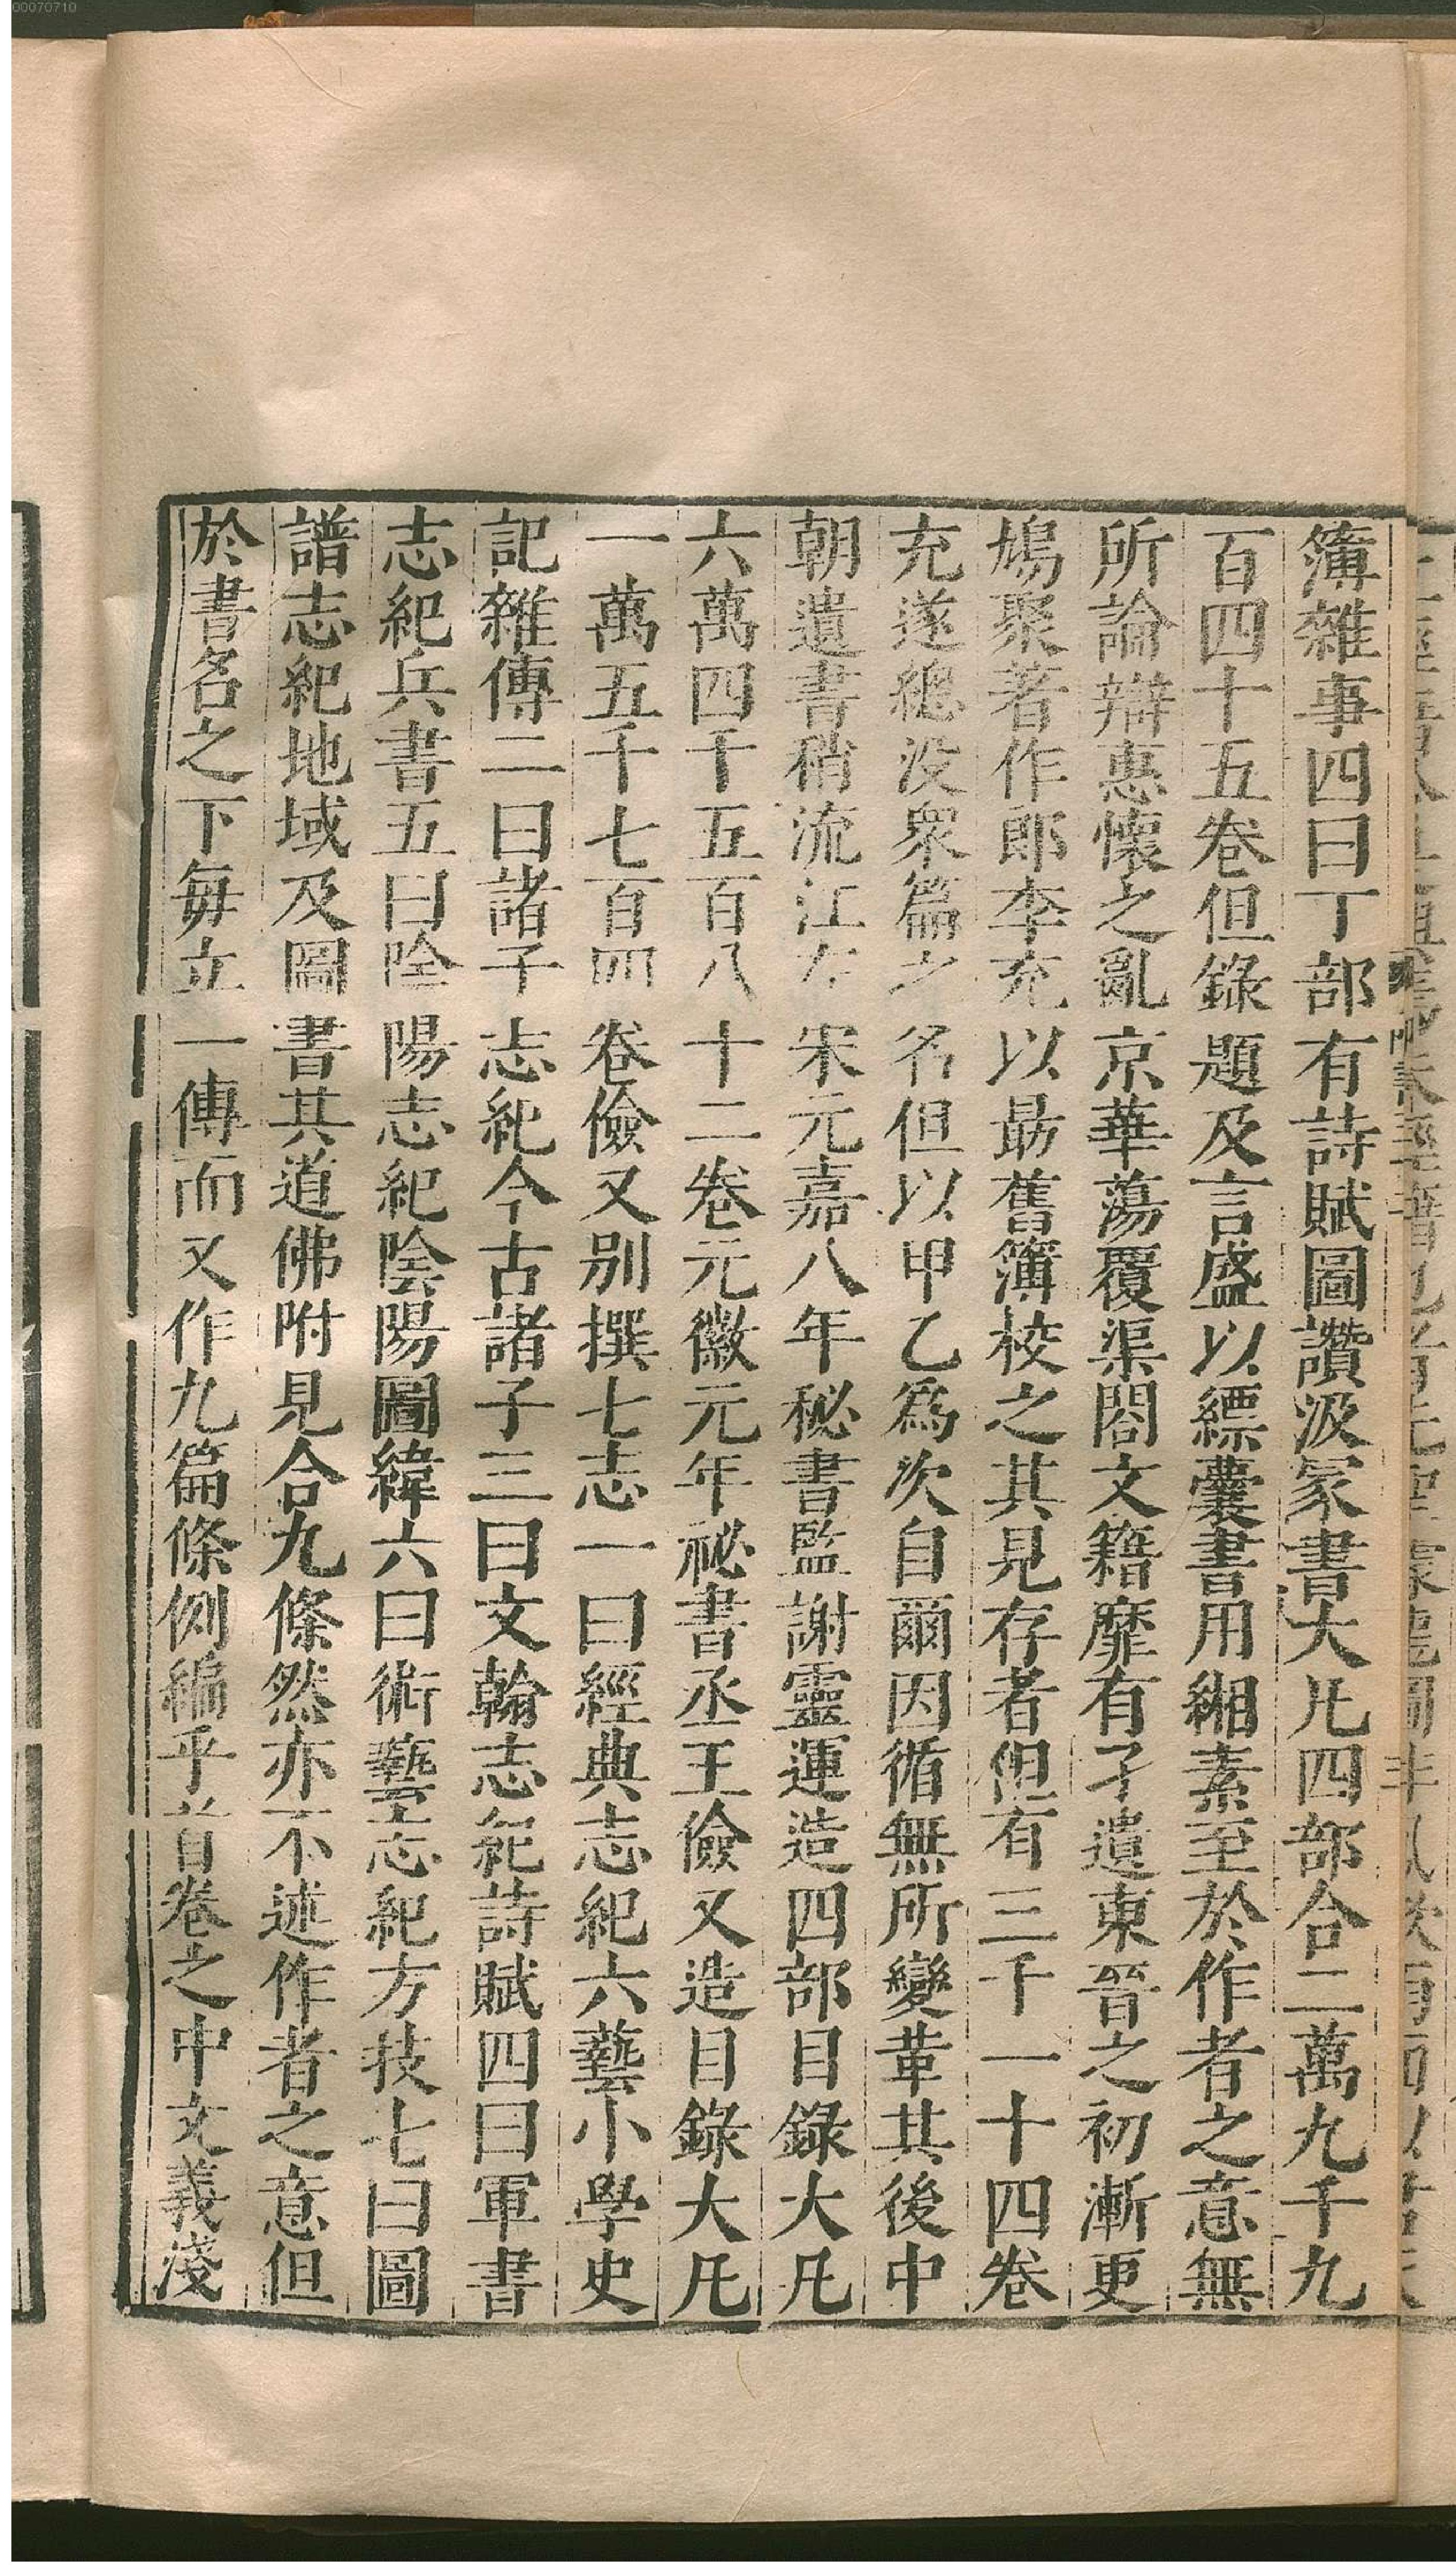 00070710
簿雜事四曰丁部有詩賦圖讚汲冢書大凡四部合二萬九千九
百四十五卷但錄題及言盛以縹囊書用緗素至於作者之意無
所論辯惠懷之亂京華蕩覆渠閣文籍靡有孑遺東晉之初漸更
鳩聚著作郎李充以勗舊簿校之其見存者但有三千一十四卷
充遂總没衆篇之名但以甲乙為次自爾因循無所變革其後中
朝遺書稍流江左宋元嘉八年秘書監謝靈運造四部目錄大凡
六萬四千五百八十二卷元徽元年祕書丞王儉又造目錄大凡
一萬五千七百四卷儉又别撰七志一曰經典志紀六藝小學史
記雜傳二曰諸子志紀今古諸子三曰文翰志紀詩賦四曰軍書
志紀兵書五曰陰陽志紀陰陽圖緯六曰術藝志紀方技七曰圖
譜志紀地域及圖書其道佛附見合九條然亦不述作者之意但
於書名之下毎立一傳而又作九篇條例編乎首卷之中文義淺